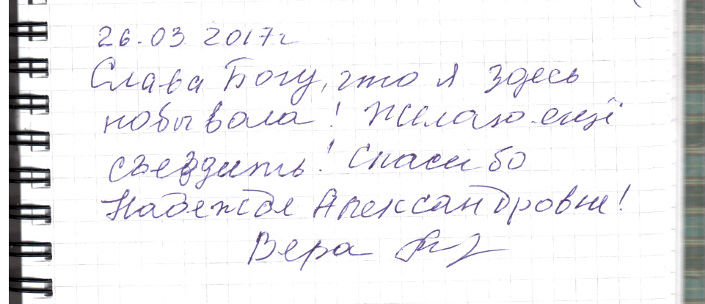 26.03 2017г
Слава Богу, что я здесь
побывала! Желаю ещё
съездить! Спасибо
Надежде Александровне!
Вера